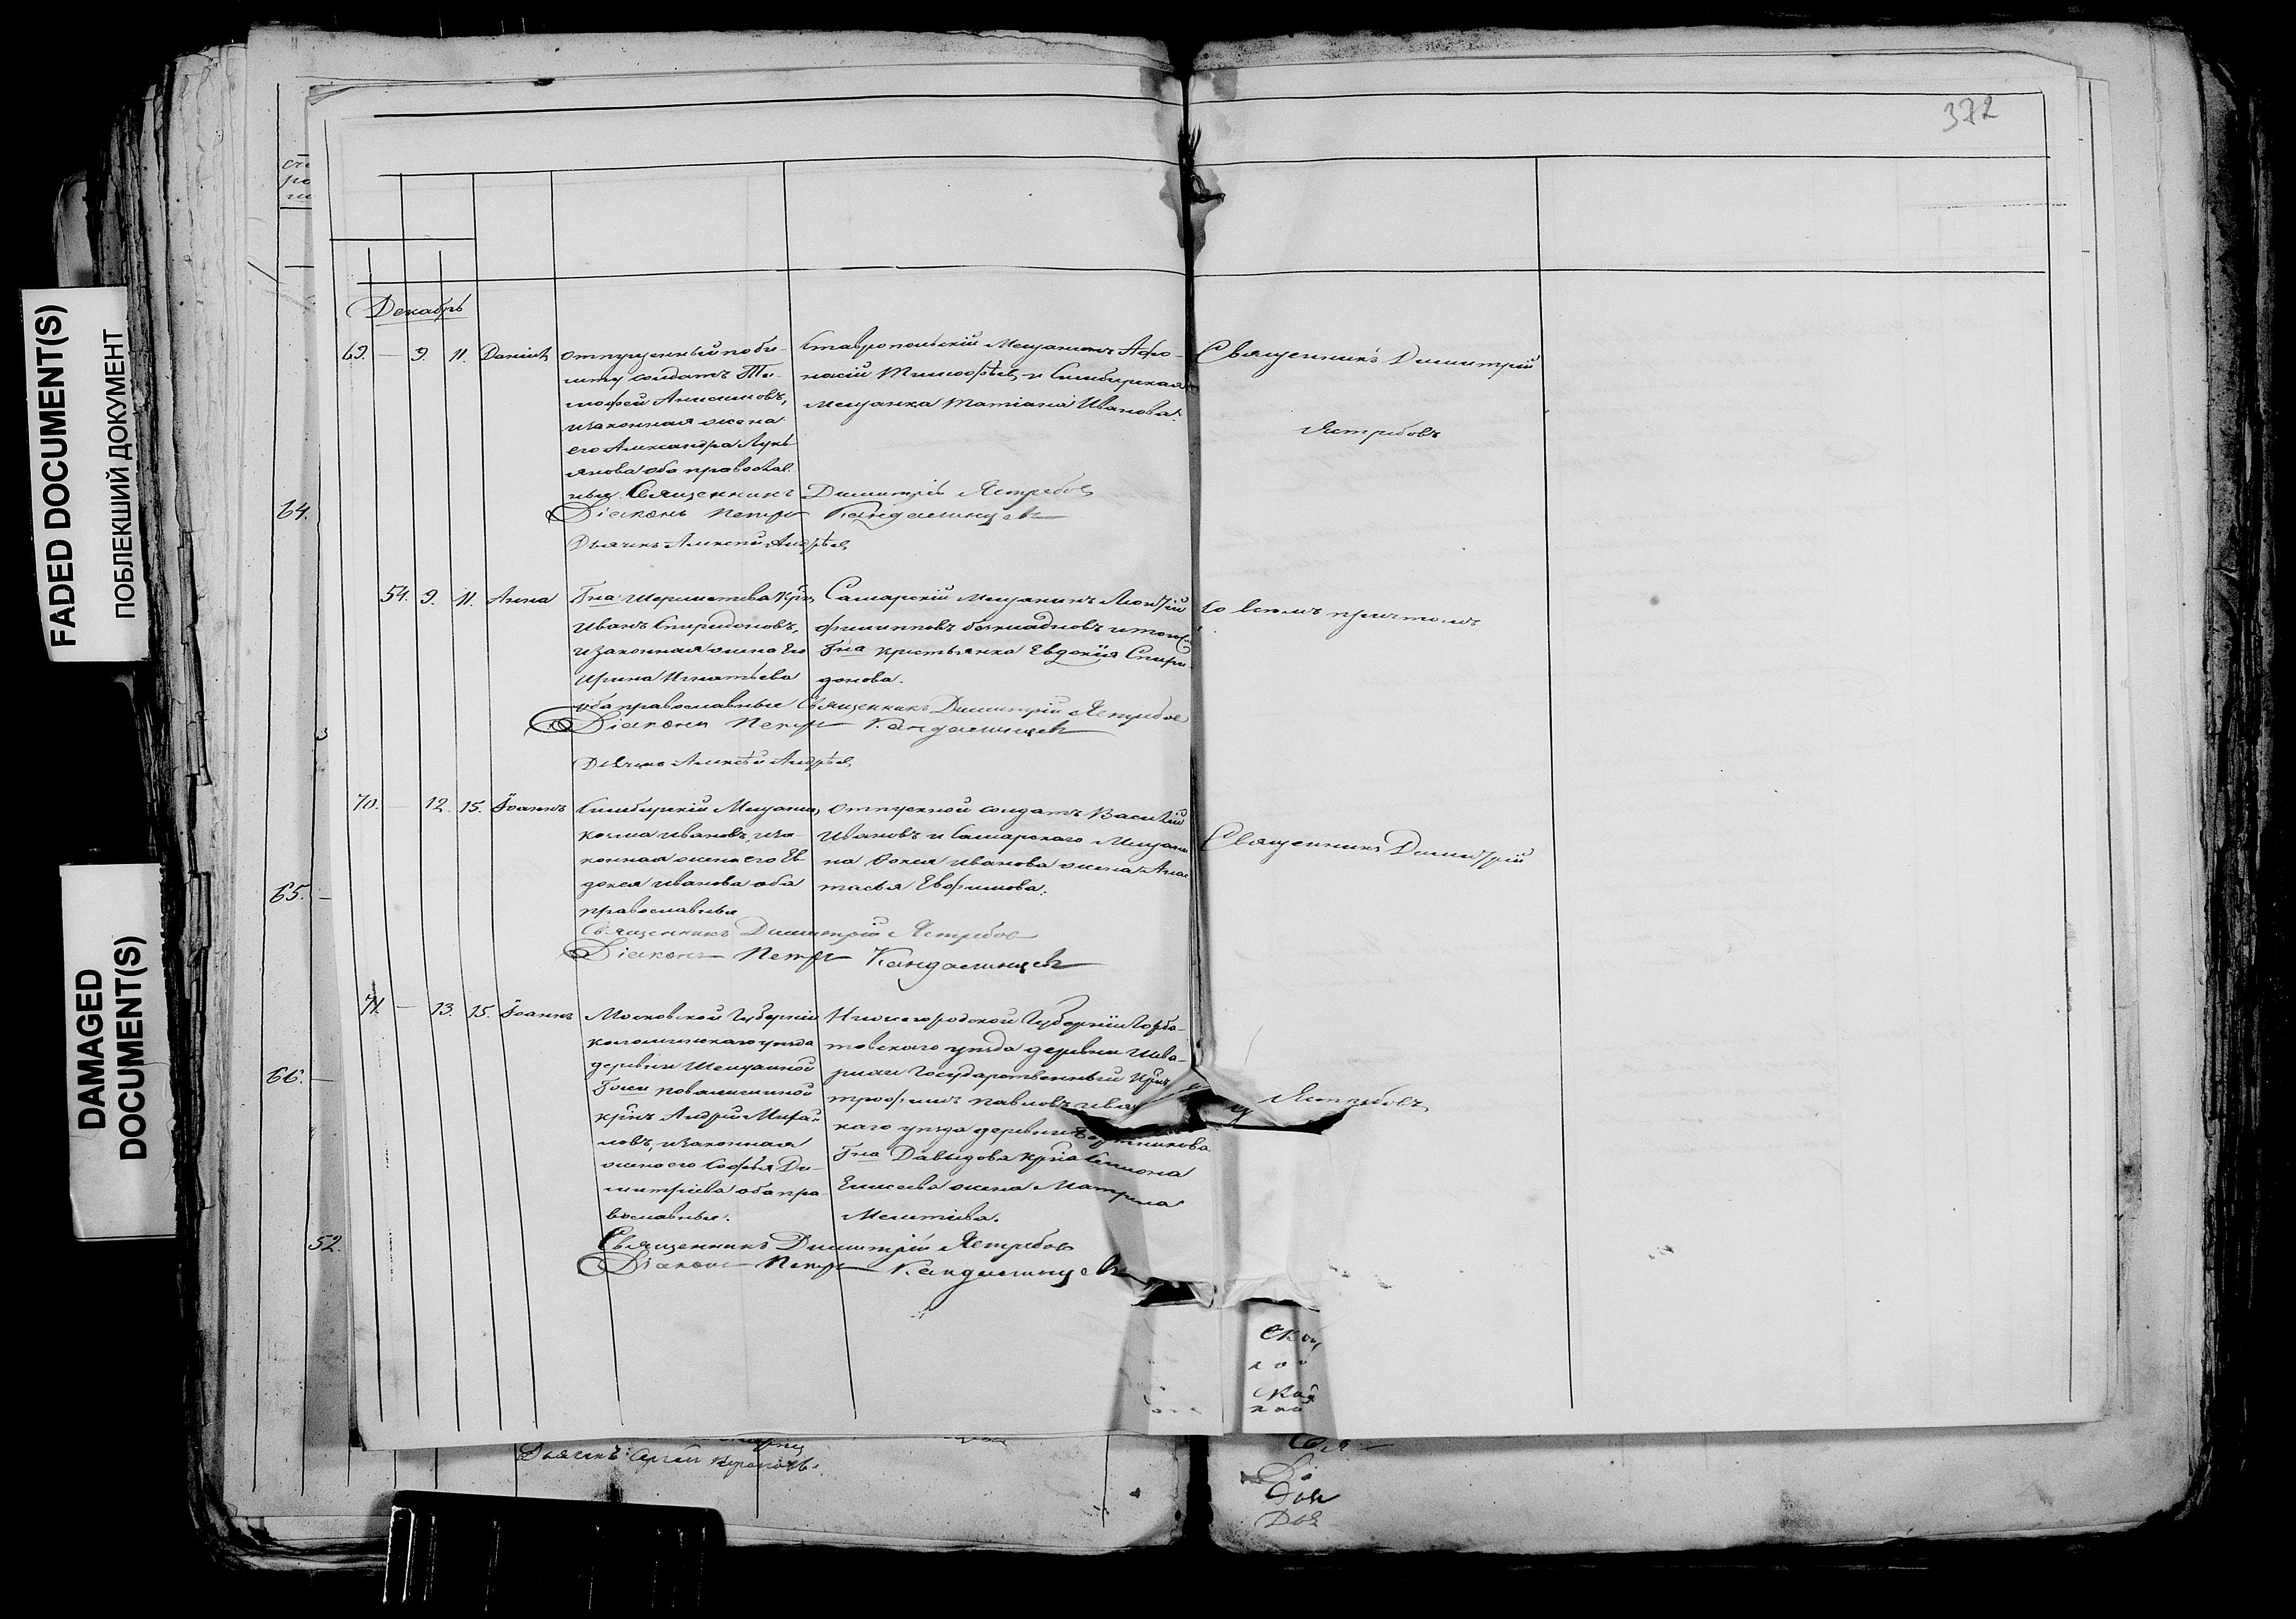 372
FADED DOCUMENT(S)
ПОБЛЕКШИЙ ДОКУМЕНТ
DAMAGED
DOCUMENT(S)
Декабрь
69. — 9. 11. Даніилъ
отпущенный по би-
лету солдатъ Ти-
мофей Анисимовъ,
и законная жена
его Александра Лукь
янова оба православ
ные.
Ставропольскій Мещанинъ Афо-
насій Тимофѣевъ, и Симбирская
мещанка Татіана Иванова.
Священникъ Димитрій
Ястребовъ
Священникъ Димитрій Ястребовъ
Діаконъ Петръ Кандалинцевъ
Дьячикъ Алексѣй Андрѣевъ
64.
54. 9. 11. Анна
Гна Шереметева Крнъ
Иванъ Спиридоновъ,
и законная жена Его
Ирина Игнатьева
оба православные
Самарскій Мещанинъ
Филипповъ и того
Гна крестьянка Евдокія Спири-
донова.
Со всемъ причтомъ
Священникъ Димитрій Ястребовъ
Діаконъ Петръ Кандалинцевъ
Дьячикъ Алексѣй Андрѣевъ
70. — 12. 15. Іоаннъ
Симбирскій Мещанин,
козма Ивановъ, и за-
конная жена его Ев
докея Иванова оба
православные
Отпускной солдатъ Василій
Ивановъ и Самарскаго Мещани
на Иванова жена Анас
тасья Ефимова.
Священникъ Димитрій
Священникъ Димитрій Ястребовъ
Діаконъ Петръ Кандалинцевъ
65. —
71. — 13. 15. Іоаннъ
Московской Губерніи
коломенскаго уѣзда
деревни
Гжи
крнъ Андрей Михай
ловъ, и законная
жена его Софья Ди-
митріева оба пра
вославные.
Нижегородской Губерніи Горба-
товскаго уѣзда деревни
Государственный Крнъ
трофимъ Павловъ и
каго уѣзда деревни
Гна Давыдова крна Семіона
Елисеева жена Матрена
Ястребовъ
66. —
Священникъ Димитрій Ястребовъ
Діаконъ Петръ Кандалинцевъ
52.
Дьячикъ Сергей